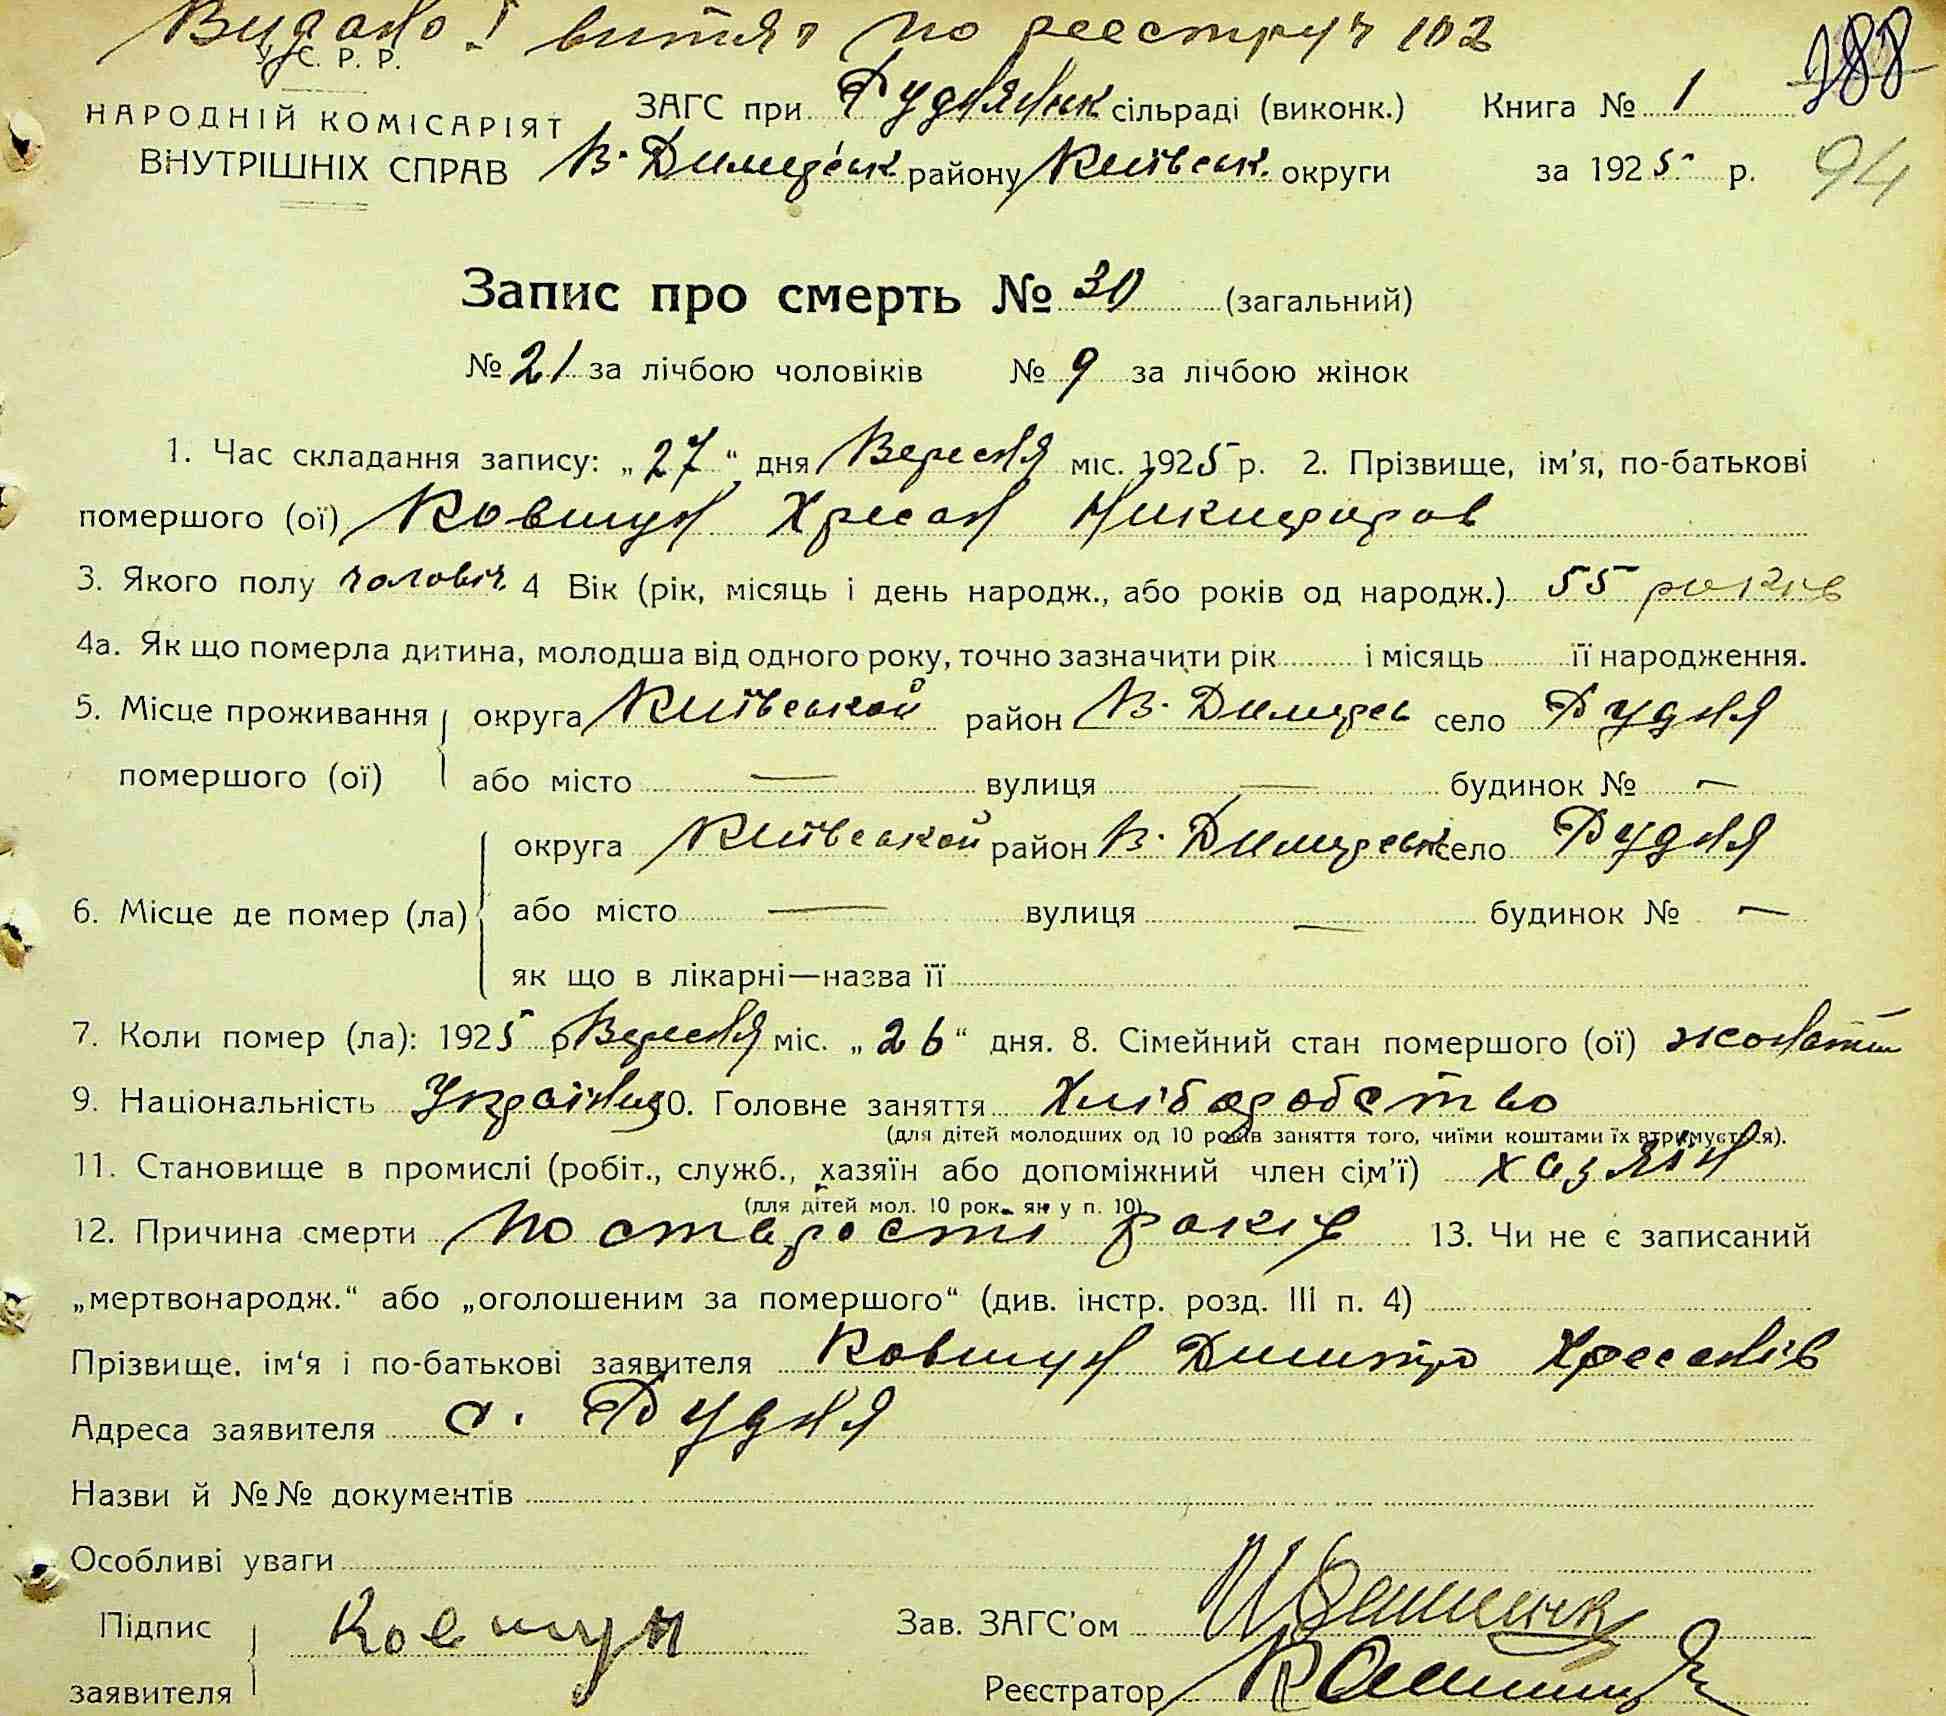 Видано! витяг по реестру 102
У. С. Р. Р. 188
НАРОДНІЙ КОМІСАРІЯТ ЗАГС при Руднянск сільраді (виконк.) Книга № 1
ВНУТРІШНІХ СПРАВ В-Димерськ району Київськ. округи за 1925 р. 94
Запис про смерть № 30 (загальний)
№ 21 за лічбою чоловіків № 9 за лічбою жінок
1. Час складання запису: „27“ дня Вересня міс. 1925 р. 2. Прізвище, ім'я, по-батькові
помершого (ої) Ковтун Хресан Никифоров
3. Якого полу чоловіч. 4 Вік (рік, місяць і день народж., або років од народж.) 55 років
4а. Як що померла дитина, молодша від одного року, точно зазначити рік і місяць її народження.
5. Місце проживання округа Київськой район В-Димерсь село Рудня
помершого (ої) або місто — вулиця — будинок № —
округа Київськой район В-Димерськ село Рудня
6. Місце де помер (ла) або місто — вулиця — будинок № —
як що в лікарні—назва її
7. Коли помер (ла): 1925 р Вересня міс. „26“ дня. 8. Сімейний стан помершого (ої) жонатий
9. Національність Україн 10. Головне заняття Хліборобство
(для дітей молодших од 10 років заняття того, чиїми коштами їх втримується).
11. Становище в промислі (робіт., служб., хазяїн або допоміжний член сім'ї) хазяїн
(для дітей мол. 10 рок. як у п. 10)
12. Причина смерти по старости років 13. Чи не є записаний
„мертвонародж.“ або „оголошеним за помершого“ (див. інстр. розд. III п. 4)
Прізвище, ім'я і по-батькові заявителя Ковтун Дмитро Хресанів
Адреса заявителя с. Рудня
Назви й №№ документів
Особливі уваги
Підпис Ковтун Зав. ЗАГС'ом
заявителя Реєстратор